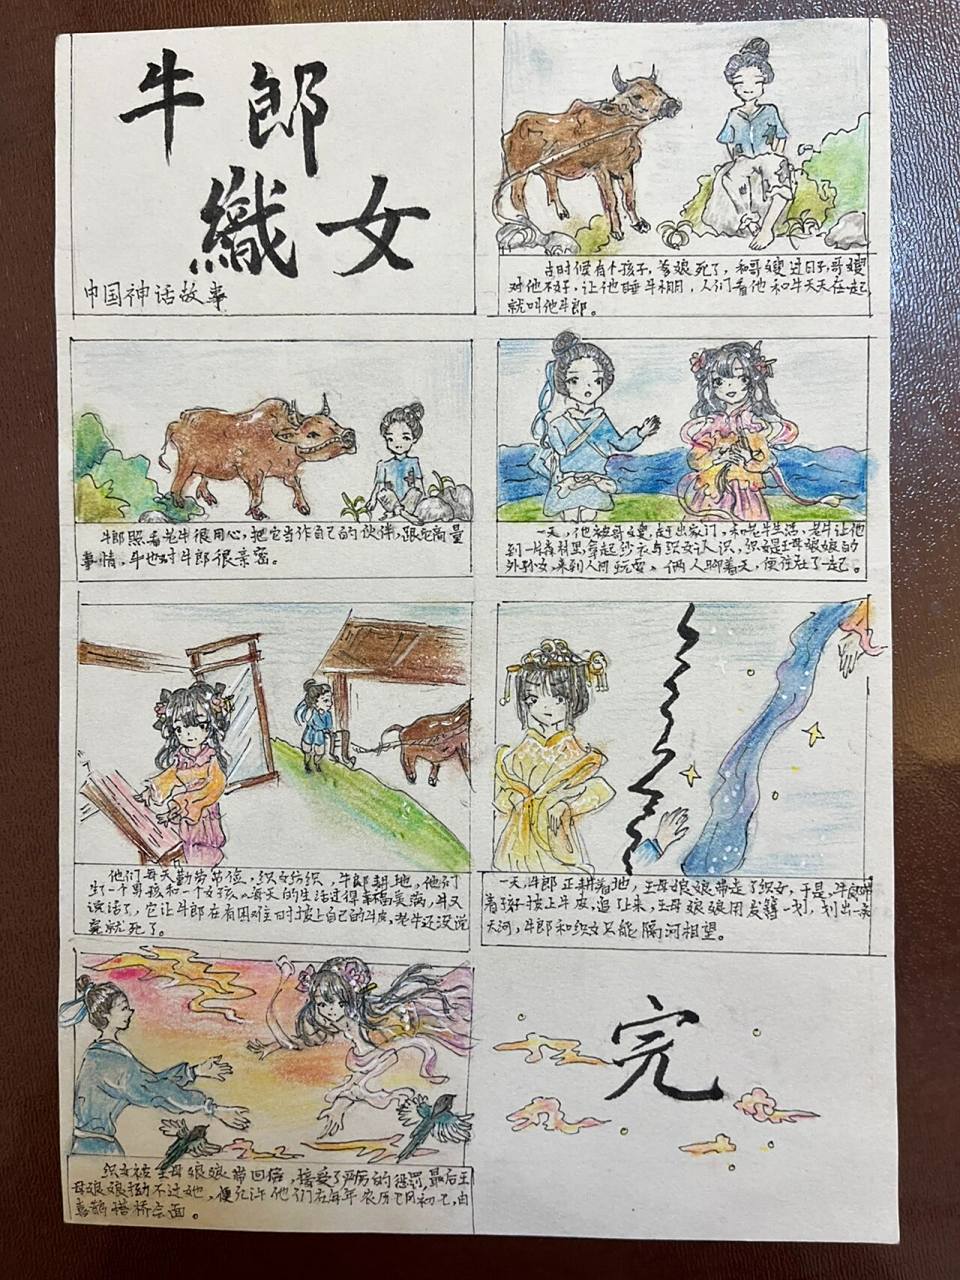 牛郎
織女
中国神话故事
古时候有个孩子，爹娘死了，和哥嫂过日子，哥嫂
对他不好，让他睡牛棚，人们看他和牛天天在一起，
就叫他牛郎。
牛郎照看老牛很用心，把它当作自己的伙伴，跟它商量
事情，牛也对牛郎很亲密。
一天，他被哥嫂赶出家门，和老牛生活，老牛让他
到一片森林里，拿起纱衣与织女认识，织女是王母娘娘的
外孙女，来到人间玩耍。俩人聊着天，便住在了一起。
他们每天勤劳，织女纺织，牛郎耕地，他们
生了一个男孩和一个女孩，每天的生活过得幸福美满，牛又
说话了，它让牛郎在有困难时披上自己的牛皮，老牛还没说
完就死了。
一天，牛郎正耕着地，王母娘娘带走了织女，于是，牛郎
着孩子披上牛皮，追上来，王母娘娘用发簪一划，划出一条
天河，牛郎和织女只能隔河相望。
织女被王母娘娘带回后，接受了严厉的惩罚，最后王
母娘娘拗不过她，便允许他们在每年农历七月初七，由
喜鹊搭桥会面。
完